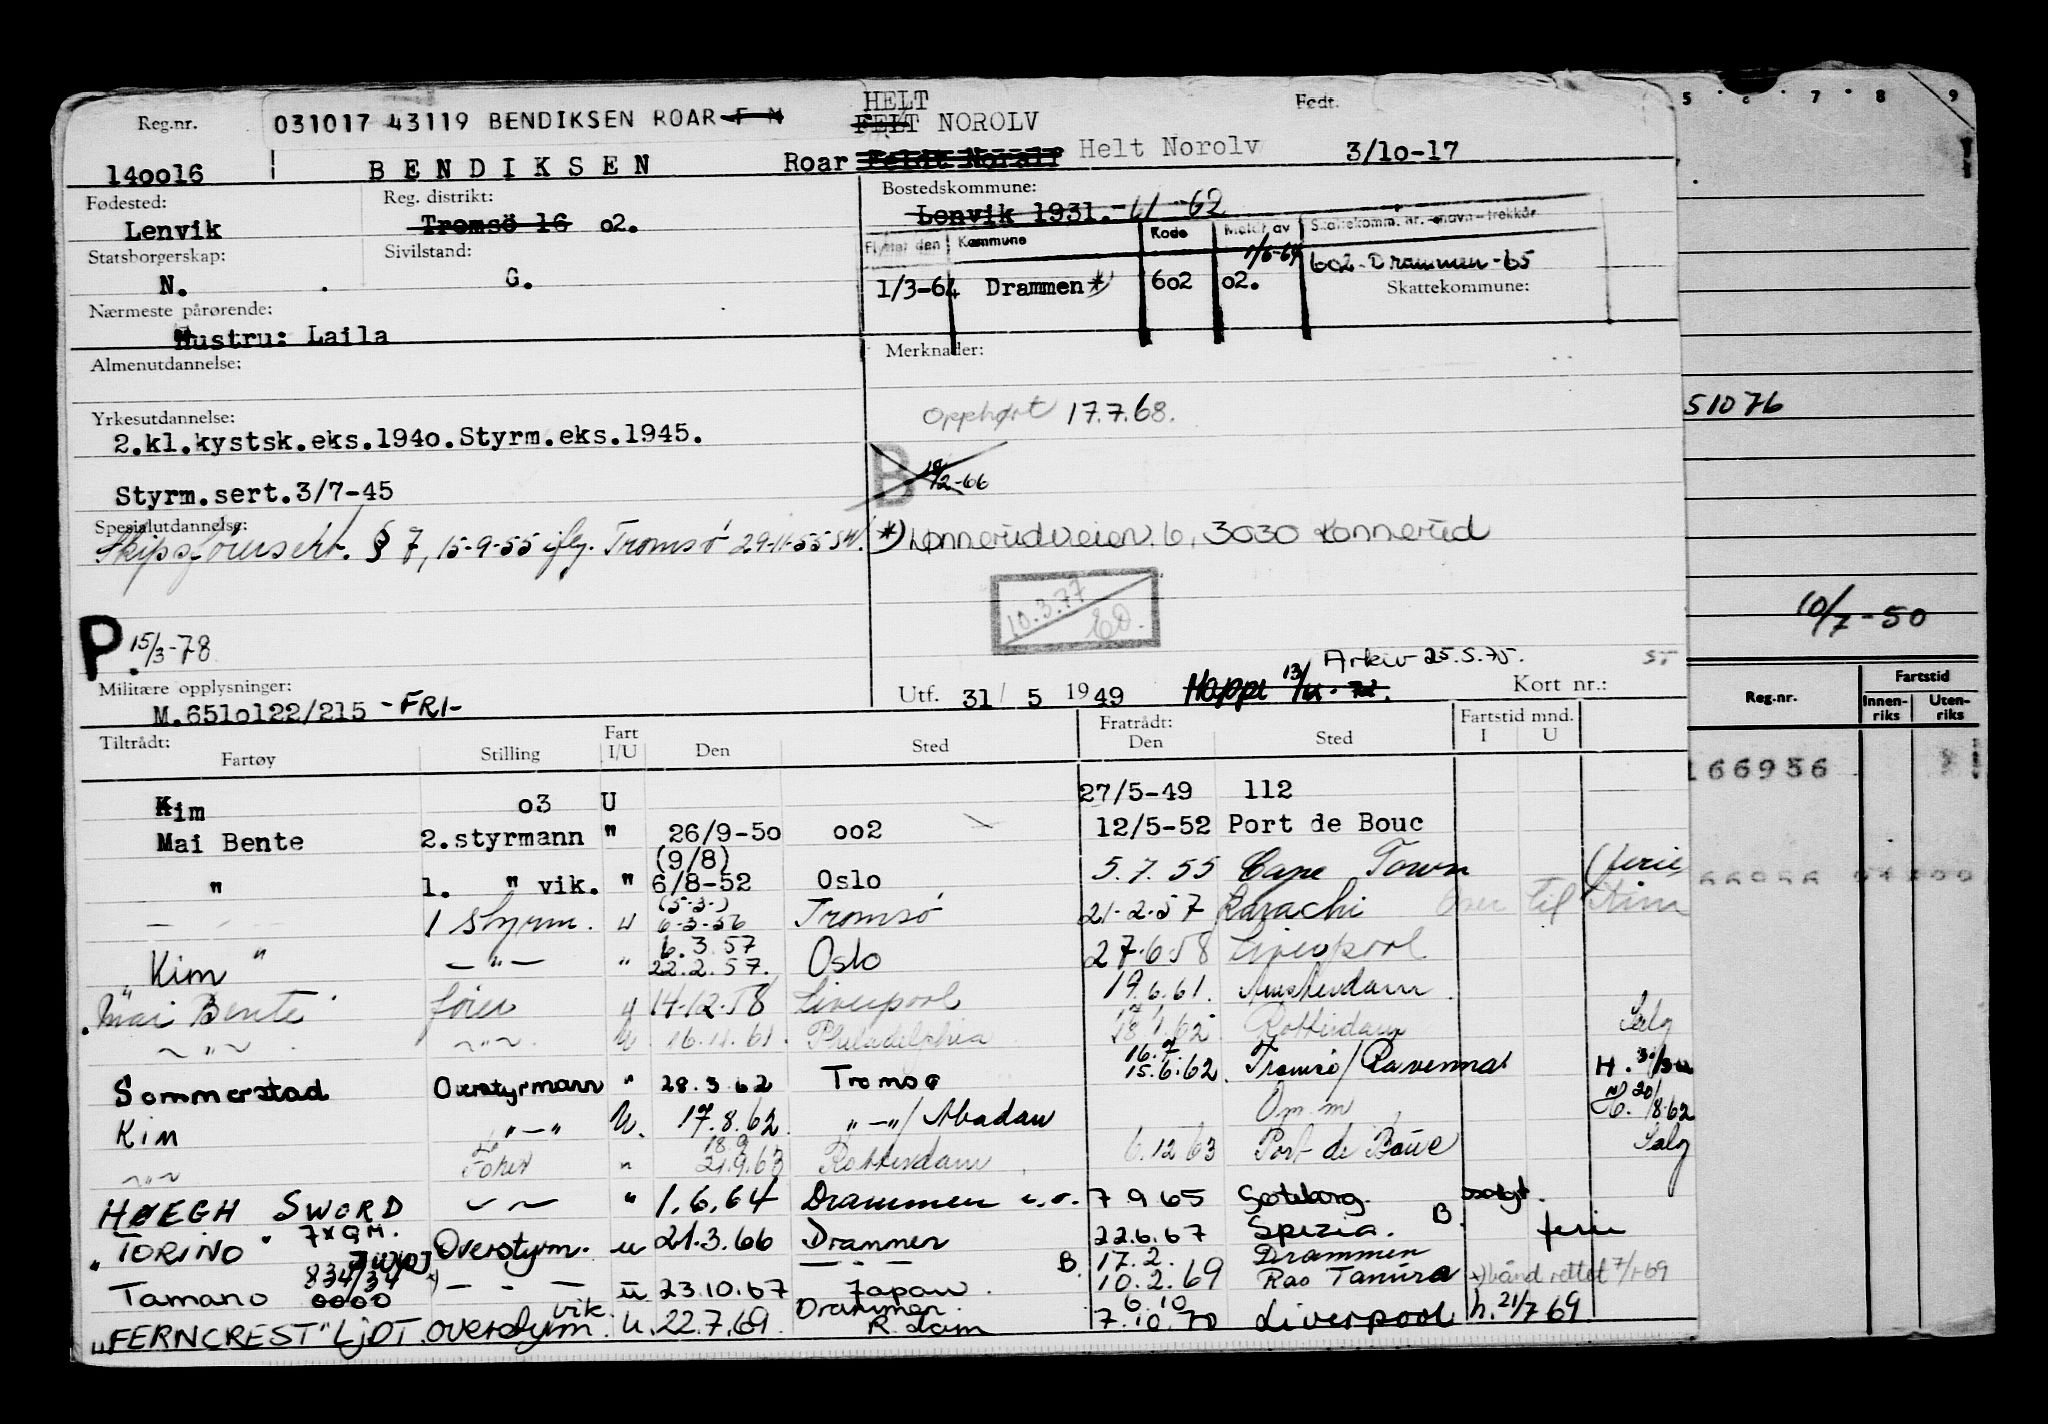 HELT
Reg.nr. 031017 43119 BENDIKSEN ROAR F M FELT NOROLV Født.
140016 BENDIKSEN Roar Feldt Noralf Helt Norolv 3/10-17
Fødested: Reg. distrikt: Bostedskommune:
Lenvik Tromsö 16 02. Lenvik 1931.-61-62
Statsborgerskap: Sivilstand: Flyttet den Kommune Kode Meldt av Skattekomm. nr. - navn - trekkår
N. G. 1/3-64 Drammen *) 602 02. 1/6-64 602-Drammen-65
Skattekommune:
Nærmeste pårørende:
Hustru: Laila
Almenutdannelse: Merknader:
Yrkesutdannelse: Opphørt 17.7.68.
2.kl.kystsk.eks.1940.Styrm.eks.1945.
B 12-66
Styrm.sert.3/7-45
Spesialutdannelse:
Skipsførersert. § 7, 15-9-55 Tromsø 29-11-55 *) 6, 3030 Konnerud
10.3.77
P. 15/3-78
Arkiv 25.5.75.
Militære opplysninger: Utf. 31/5 1949 Kort nr.:
M.6510122/215 -FRI-
Tiltrådt: Fartøy Stilling Fart I/U Den Sted Fratrådt: Den Sted Fartstid mnd. I U
Kim 03 U 27/5-49 112
Mai Bente 2.styrmann " 26/9-50 002 12/5-52 Port de Bouc
(9/8)
" 1. " vik. " 6/8-52 Oslo 5.7.55 Cape Town (ferie)
(5-3-)
- " 1 styrm. u 6-3-56 Tromsø 21-2-57 Karachi Over til Kim
6.3.57
" Kim -"- " 22.2.57. Oslo 27.6.58 Liverpool
Mai Bente fører u 14.12.58 Liverpool 19.6.61. Amsterdam
~"~ ~"~ U 16.11.61. Philadelphia 18.1.62 Rotterdam Salg
16.7
Sommerstad Overstyrmann " 28.3.62 Tromsø 15.6.62. Tromsø/Ravenna
Kim "-" U. 17.8.62 "-"/Abadan Om.m 20/8-62
18.9
~"~ Fører " 21.9.63 Rotterdam 6.12.63 Port de Bouc Salg
HØEGH SWORD ~~ " 1.6.64 Drammen 7.9.65 Gøteborg. solgt.
7XGM.
"TORINO" Overstyrm. u 21.3.66 Drammen 22.6.67 Spezia. B. ferie
JWPJ
17.2. Drammen
Tamano 834/34 *) - - - u 23.10.67 Japan B 10.2.69 Ras Tanura *) bånd rettet 7/1-69
0000
6.10
"FERNCREST" LJDT. overstyrm. vik. u. 22.7.69. Drammen. R.dam 7.10.70 Liverpool h.21/7 69
5 6 7 8 9
51076
10/7-50
Reg.nr. Fartstid
Innen-riks Uten-riks
166956